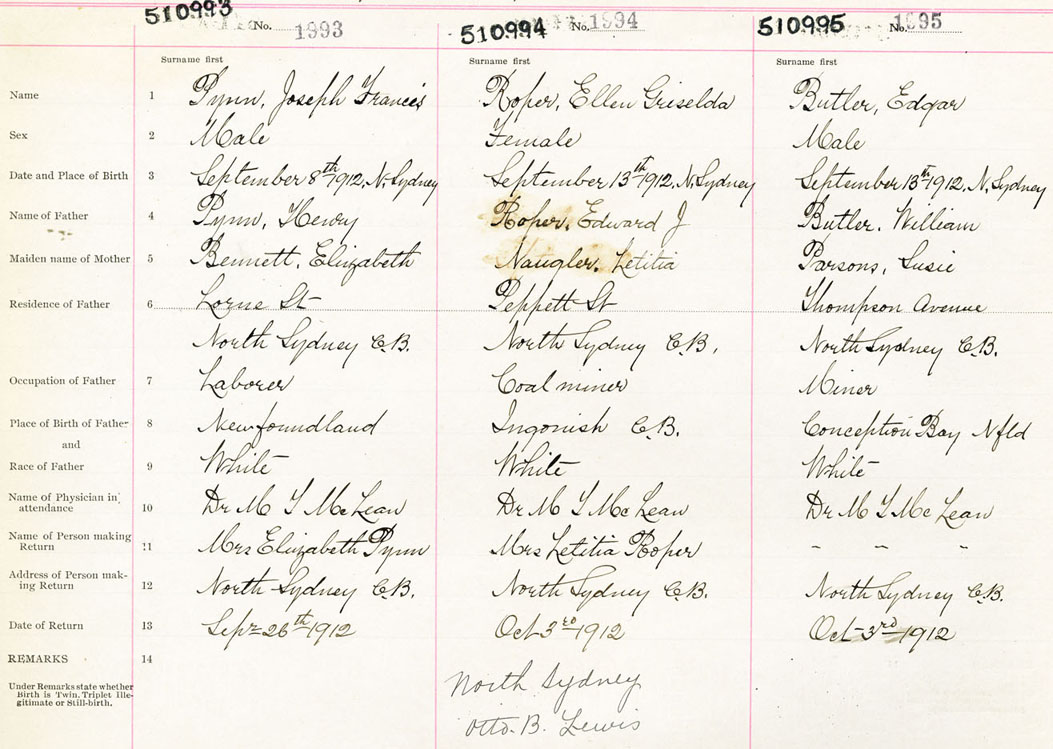 510993 No. 1993 510994 No. 1994 510995 No. 1995
Surname first Surname first Surname first
Name 1 Pynn, Joseph Francis Roper, Ellen Griselda Butler, Edgar
Sex 2 Male Female Male
Date and Place of Birth 3 September 8th 1912, N. Sydney September 13th 1912, N. Sydney September 13th 1912, N, Sydney
Name of Father 4 Pynn, Henry Roper, Edward J Butler. William
Maiden name of Mother 5 Bennett, Elizabeth Naugler, Letitia Parsons, Susie
Residence of Father 6 Lorne St Peppett St Thompson Avenue
North Sydney C.B. North Sydney C.B, North Sydney C.B.
Occupation of Father 7 Laborer Coal miner Miner
Place of Birth of Father 8 Newfoundland Ingonish C.B. Conception Bay Nfld
and
Race of Father 9 White White White
Name of Physician in
attendance 10 Dr M McLean Dr M McLean Dr M McLean
Name of Person making
Return 11 Mrs Elizabeth Pynn Mrs Letitia Roper " " "
Address of Person mak-
ing Return 12 North Sydney C.B. North Sydney C.B. North Sydney C.B.
Date of Return 13 Sept 26th 1912 Oct 3rd 1912 Oct 3rd 1912
REMARKS 14
Under Remarks state whether
Birth is Twin, Triplet Ille-
gitimate or Still-birth.
North Sydney
Otto. B. Lewis